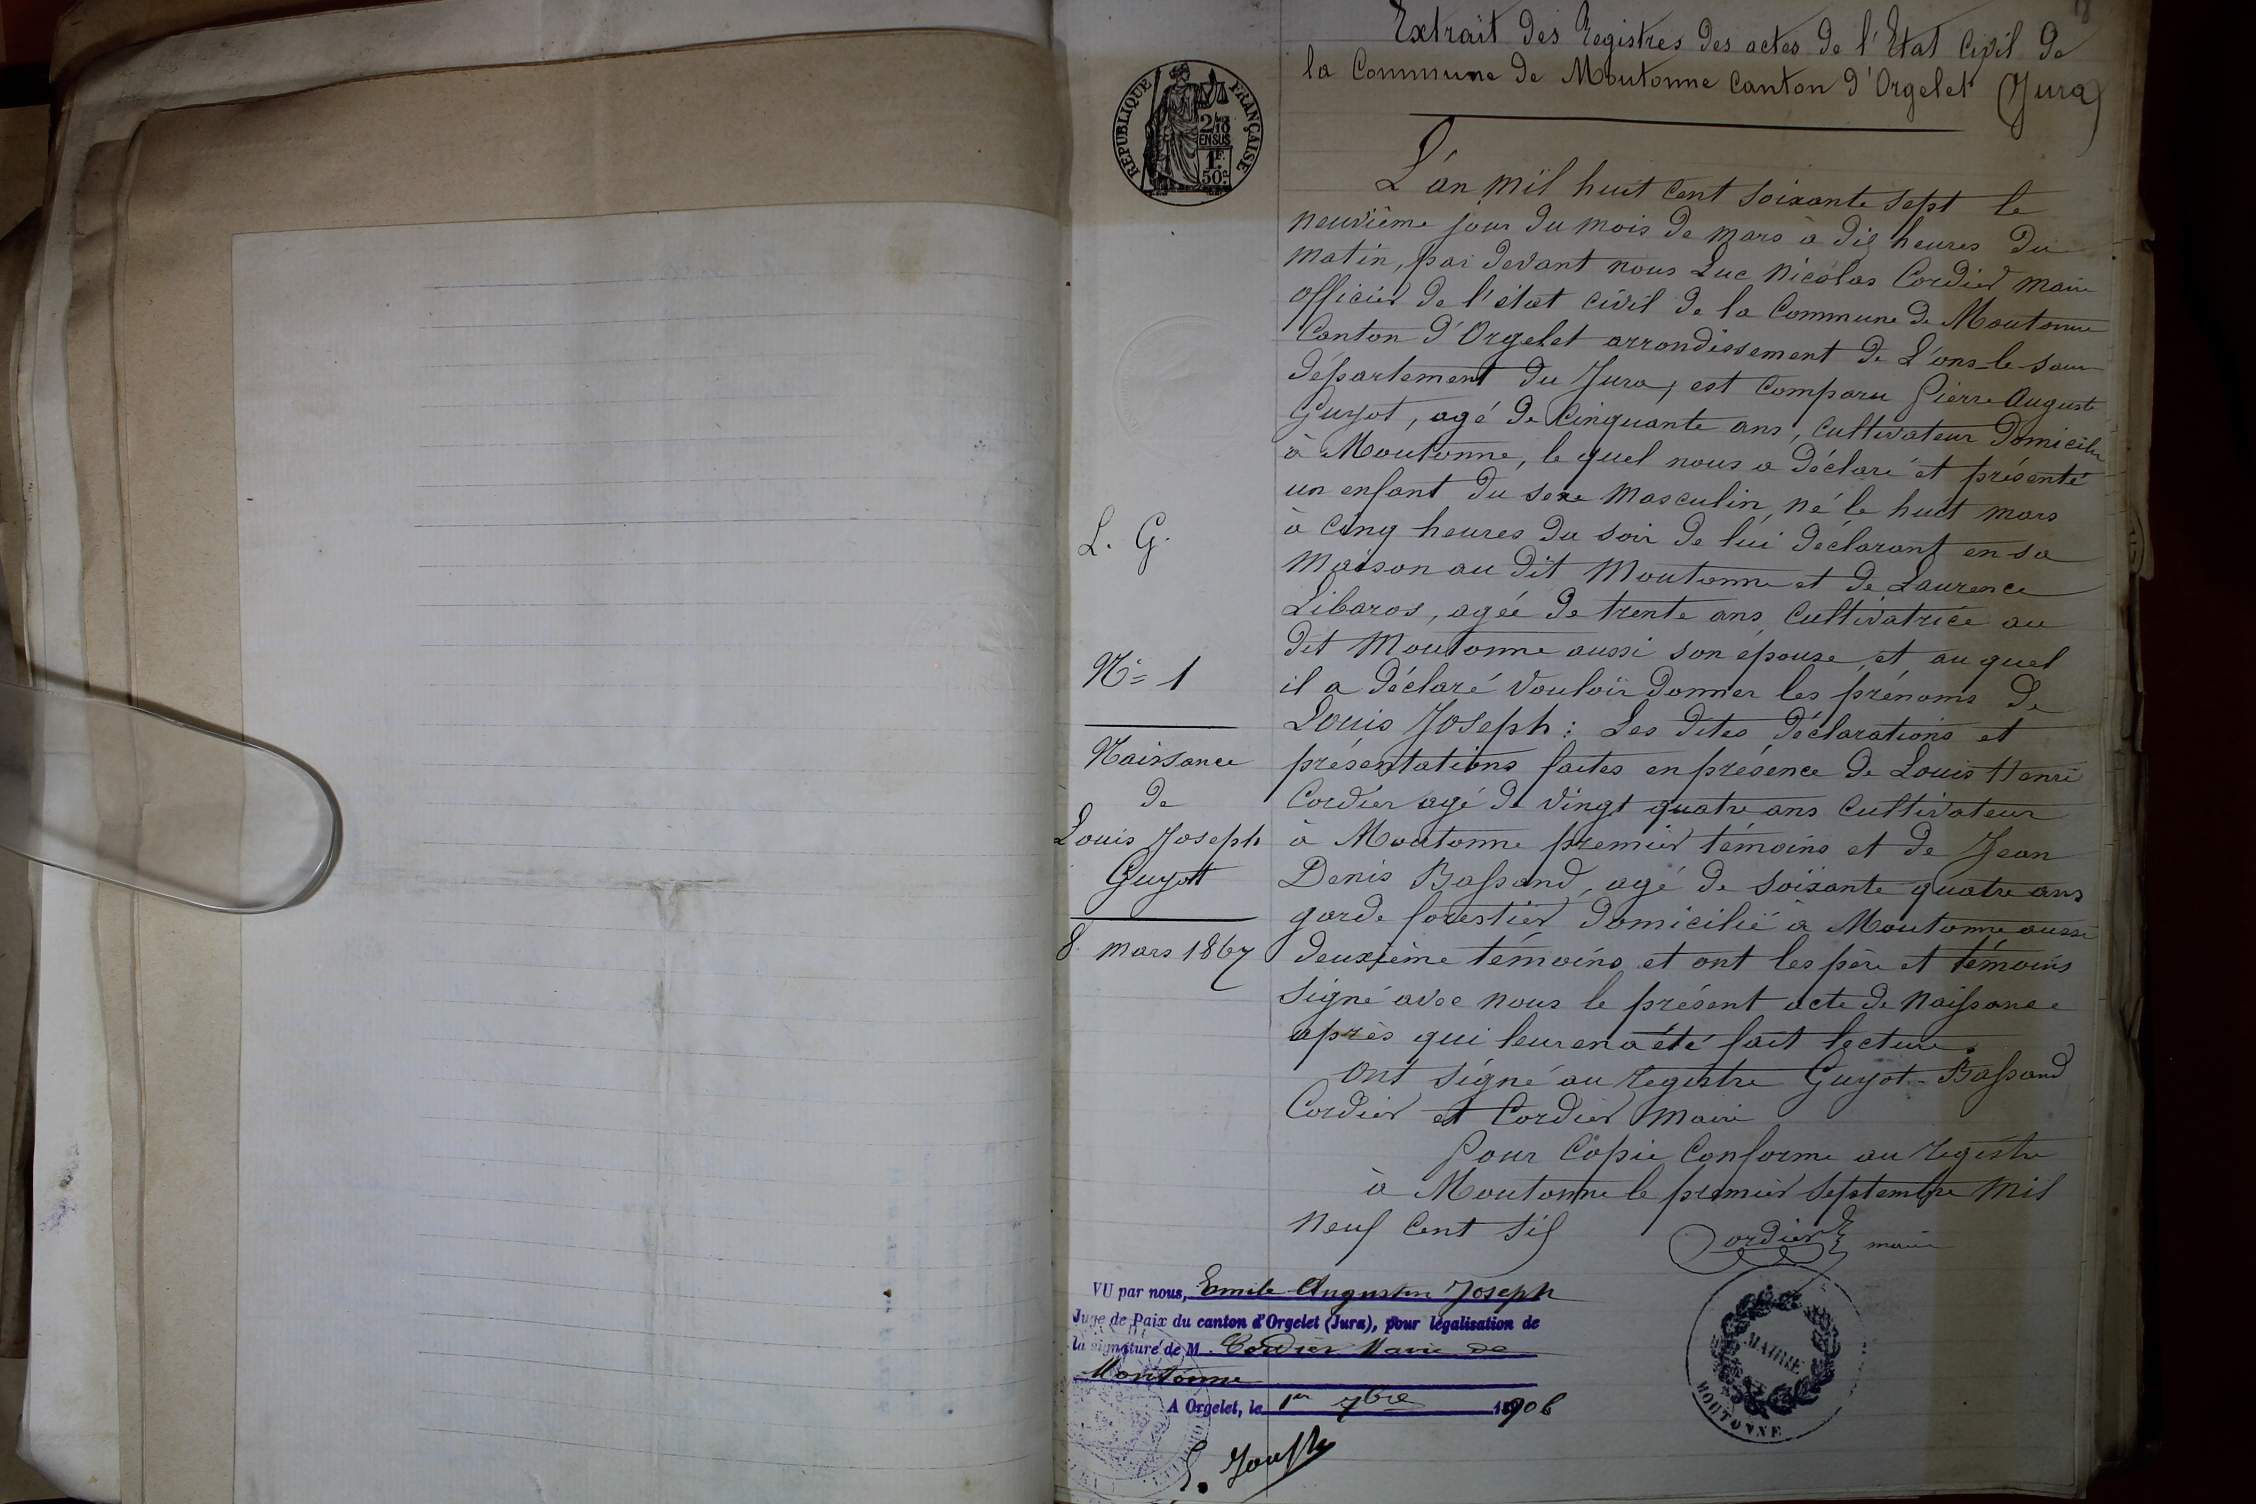 18
Extrait des Registres des actes de l'Etat Civil de
la Commune de Moutonne Canton d'Orgelet (Jura)
REPUBLIQUE FRANÇAISE
2/10
EN SUS
1F.
50c.
L'án mil huit Cent soixante sept le
neuvième jour du mois de mars à dis heures du
matin, par devant nous Luc Nicolas Cordier maire
officier de l'état civil de la Commune de Moutonne
Canton d'Orgelet arrondissement de L'ons-le-saun
département du Jura, est Comparu Pierre Auguste
Guyot, agé de Cinquante ans, Cultivateur Domicilié
à Moutonne, le quel nous a déclaré et présenté
un enfant du sexe Masculin, né le huit mars
à cinq heures du soir de lui déclarant en sa
Maison au dit Moutonne et de Laurence
Libaros, agée de trente ans Cultivatrice au
dit Moutonne aussi son épouse, et au quel
il a déclaré vouloir donner les prénoms de
Louis Joseph: Les dites déclarations et
présentations faites en présence de Louis Henri
Cordier agé de Vingt quatre ans Cultivateur
à Moutonne premier témoins et de Jean
Denis Bassand, agé de soixante quatre ans
garde forestier domicilié à Moutonne aussi
deuxième témoins et ont les père et témoins
signé avec nous le présent acte de Naissance
après qui leur en a été fait lecture.
Ont signé au registre Guyot-Bassand
Cordier et Cordier Maire
Pour Copie Conforme au registre
à Moutonne le premier Septembre mil
neuf Cent sis
Cordier maire
L. G.
N° = 1
Naissance
de
Louis Joseph
Guyot
8 mars 1867
VU par nous, Emile Augustin Joseph
Juge de Paix du canton d'Orgelet (Jura), pour légalisation de
la signature de M. Cordier Maire de
Moutonne
A Orgelet, le 1er 7bre 1906
MAIRIE
MOUTONNE